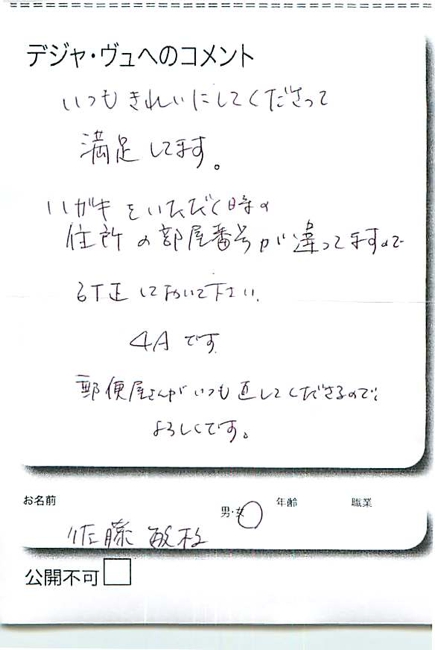 デジャ・ヴュへのコメント
いつもきれいにしてくださって
満足してます。
ハガキをいただく時の
住所の部屋番号が違ってますので
訂正しておいて下さい.
4Aです
郵便屋さんがいつも直してくださるので、
よろしくです。
お名前 男・女 年齢 職業
佐藤 敏枝
公開不可